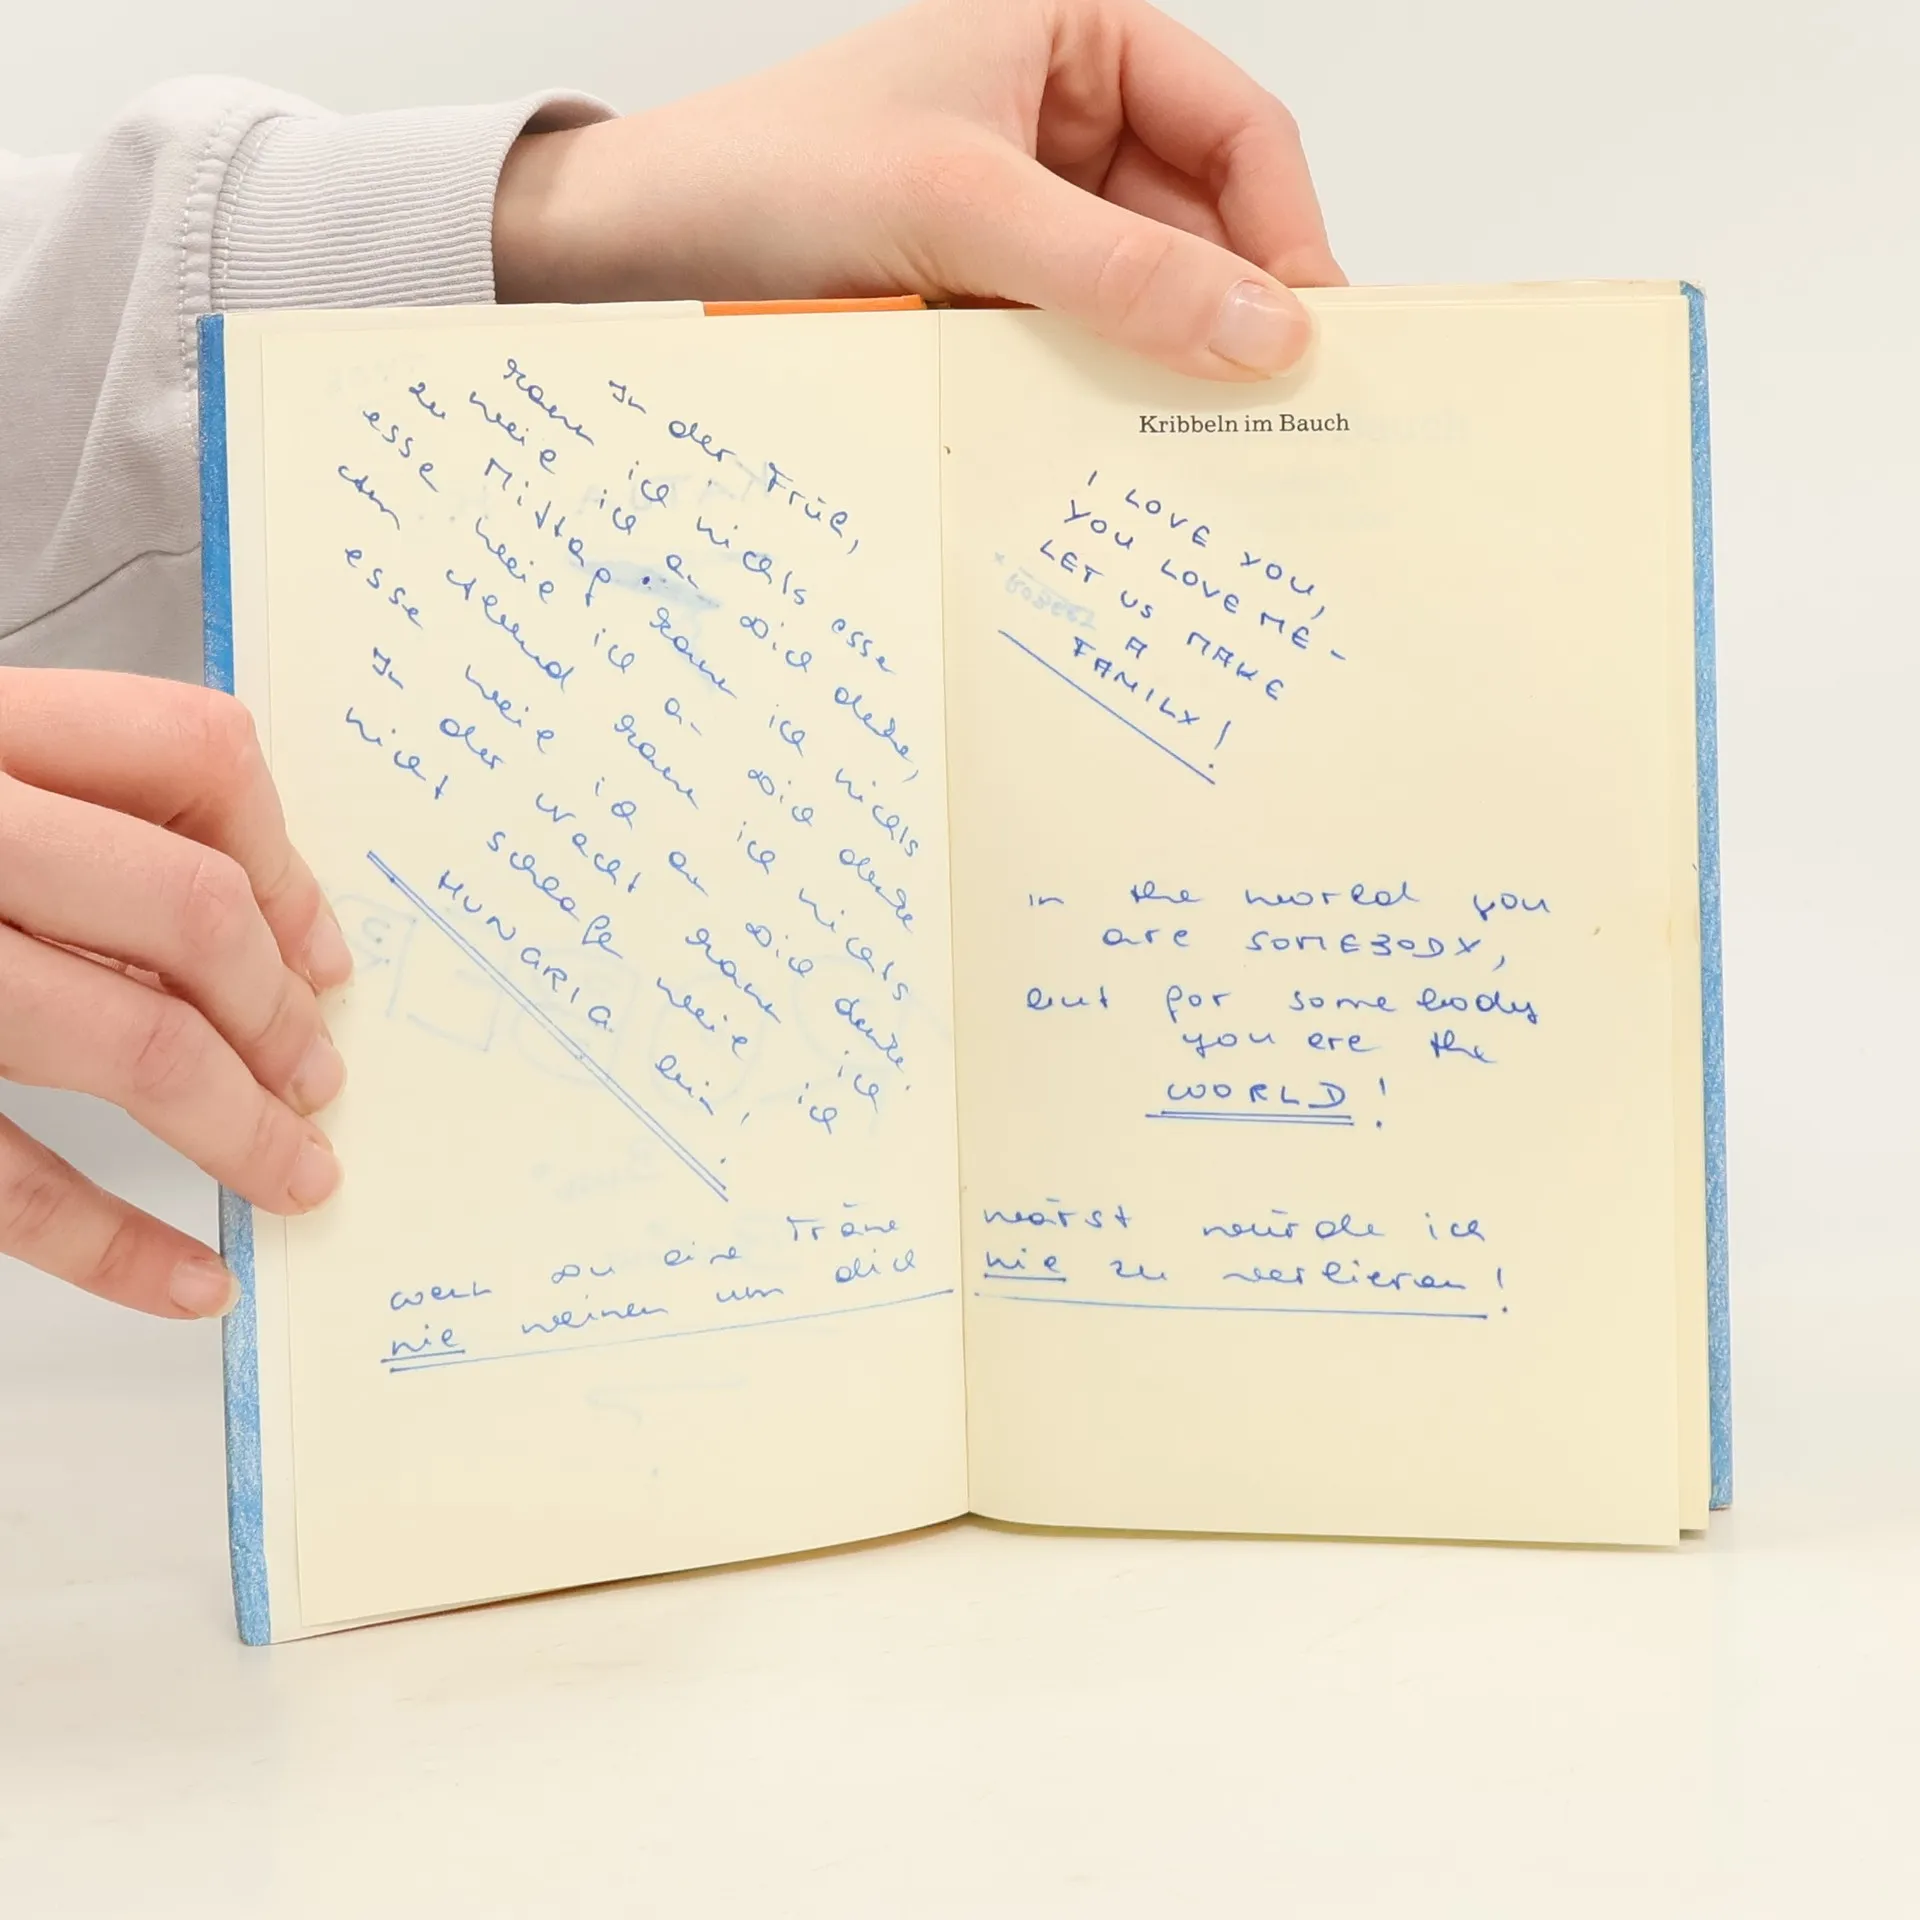 In der Früh,
kann ich nichts esse
weil ich an Dich denke,
zu Mittag kann ich nichts
esse weil ich an Dich denke
am Abend kann ich nichts
esse weil ich an Dich denke.
In der Nacht kann ich
nicht schlafe weil ich
HUNGRIG bin!
wenn Du eine Träne wärst würde ich
nie weinen um dich nie zu verlieren!
Kribbeln im Bauch
I LOVE YOU,
YOU LOVE ME -
LET US MAKE
A
FAMILY!
in the world you
are SOMEBODY,
but for somebody
you are the
WORLD!